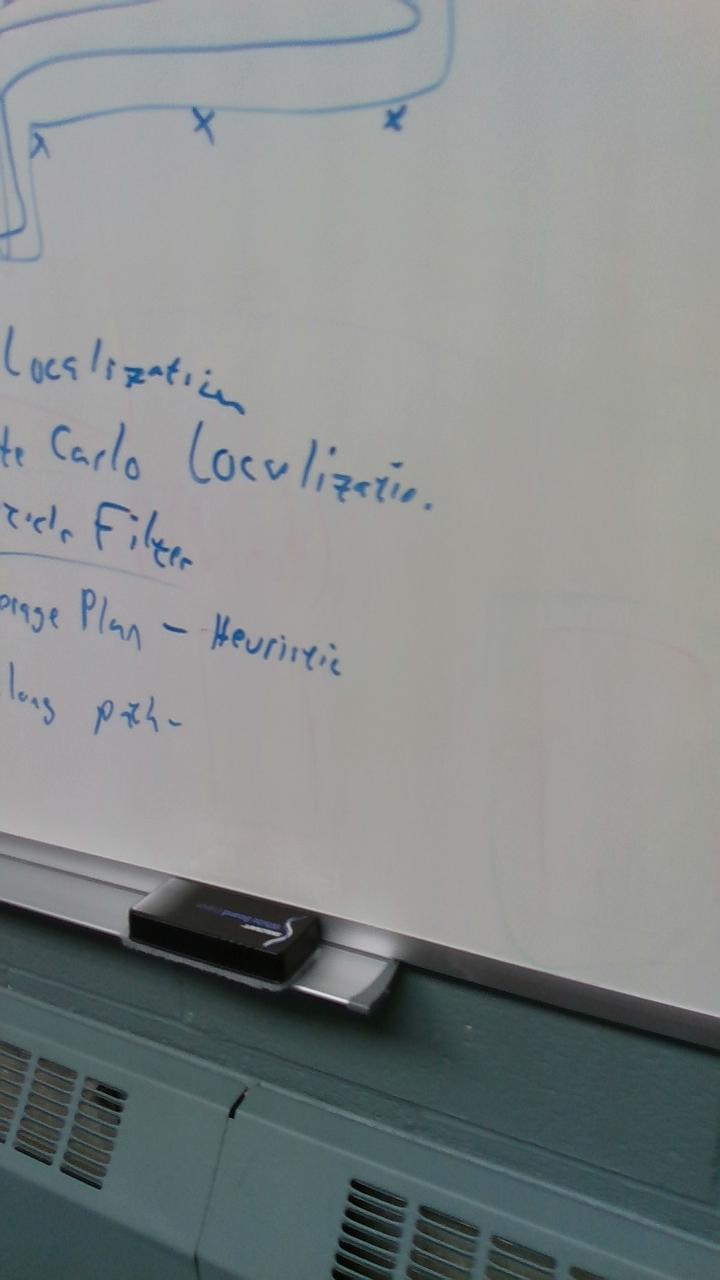 x x x
Localization
te Carlo Localizatio.
ticle Filter
orage Plan - Heuristic
long path-
White Board